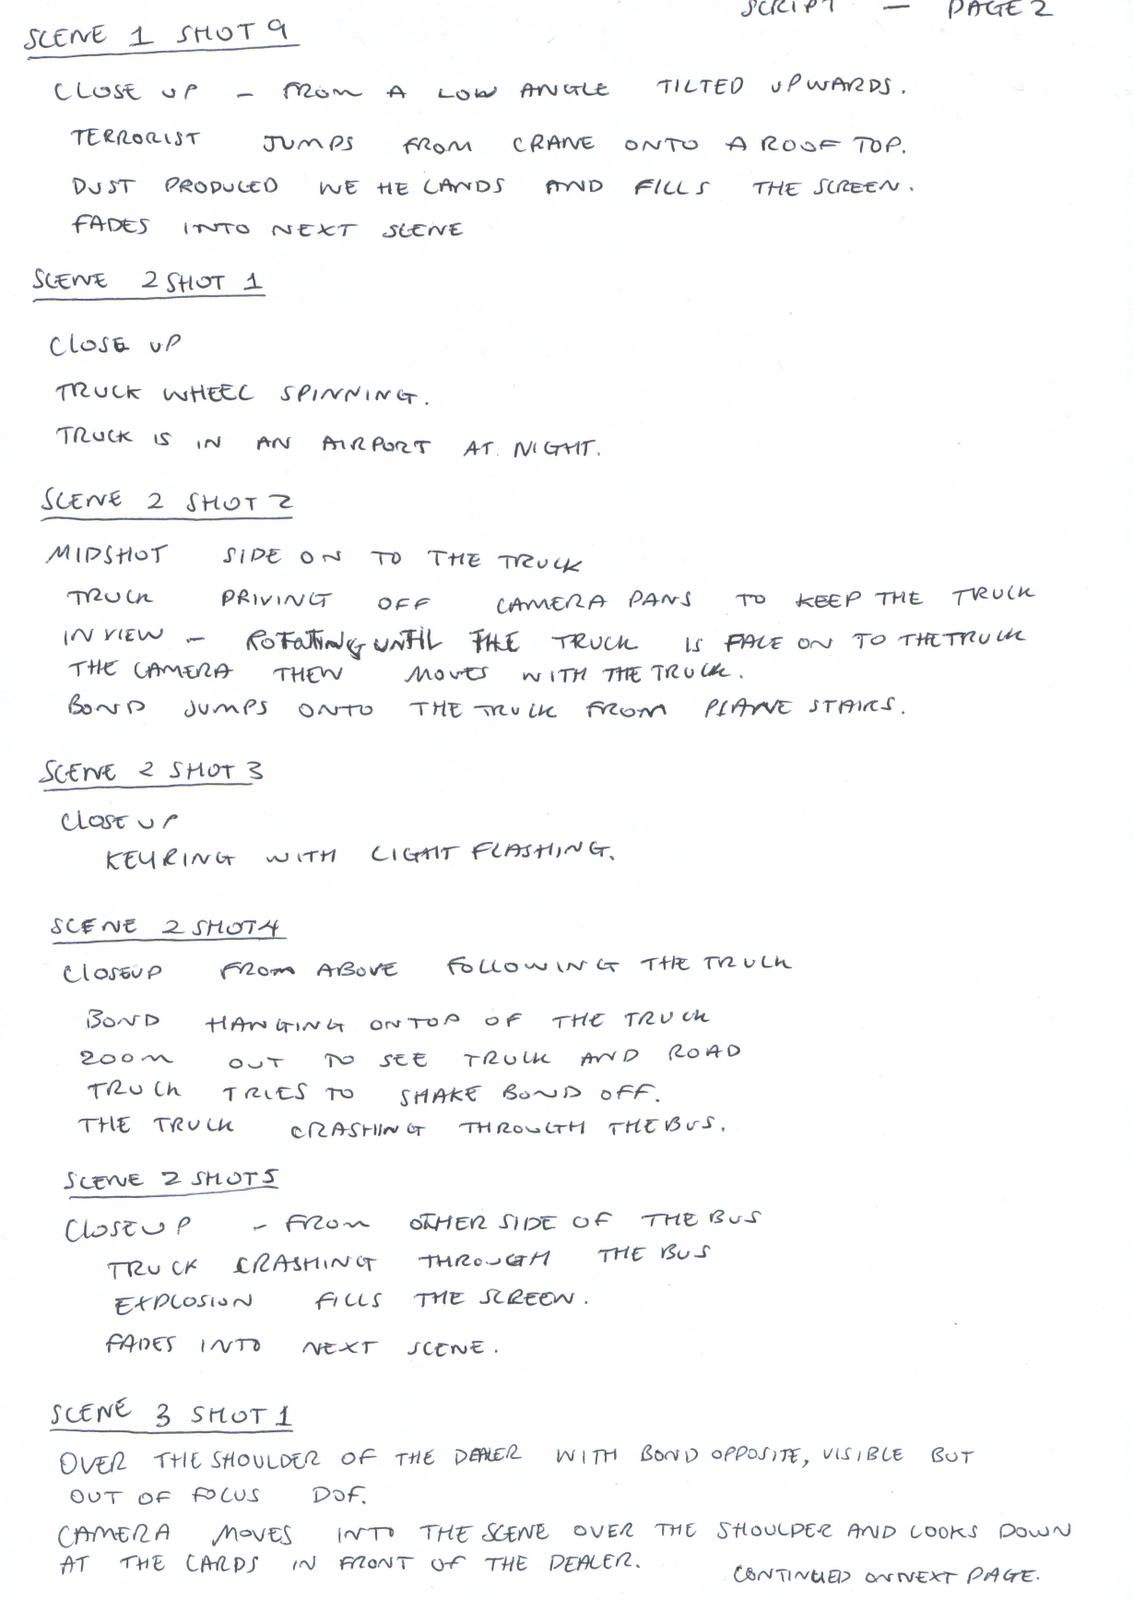 SCRIPT — PAGE 2
SCENE 1 SHOT 9
CLOSE UP - FROM A LOW ANGLE TILTED UPWARDS.
TERRORIST JUMPS FROM CRANE ONTO A ROOF TOP.
DUST PRODUCED WE HE LANDS AND FILLS THE SCREEN.
FADES INTO NEXT SCENE
SCENE 2 SHOT 1
CLOSE UP
TRUCK WHEEL SPINNING.
TRUCK IS IN AN AIRPORT AT NIGHT.
SCENE 2 SHOT 2
MIDSHOT SIDE ON TO THE TRUCK
TRUCK DRIVING OFF CAMERA PANS TO KEEP THE TRUCK
IN VIEW - ROTATING UNTIL THE TRUCK IS FACE ON TO THE TRUCK
THE CAMERA THEN MOVES WITH THE TRUCK.
BOND JUMPS ONTO THE TRUCK FROM PLANE STAIRS.
SCENE 2 SHOT 3
CLOSE UP
KEYRING WITH LIGHT FLASHING.
SCENE 2 SHOT 4
CLOSEUP FROM ABOVE FOLLOWING THE TRUCK
BOND HANGING ONTOP OF THE TRUCK
ZOOM OUT TO SEE TRUCK AND ROAD
TRUCK TRIES TO SHAKE BOND OFF.
THE TRUCK CRASHING THROUGH THE BUS.
SCENE 2 SHOT 5
CLOSEUP - FROM OTHER SIDE OF THE BUS
TRUCK CRASHING THROUGH THE BUS
EXPLOSION FILLS THE SCREEN.
FADES INTO NEXT SCENE.
SCENE 3 SHOT 1
OVER THE SHOULDER OF THE DEALER WITH BOND OPPOSITE, VISIBLE BUT
OUT OF FOCUS DOF.
CAMERA MOVES INTO THE SCENE OVER THE SHOULDER AND LOOKS DOWN
AT THE CARDS IN FRONT OF THE DEALER.
CONTINUED ON NEXT PAGE.